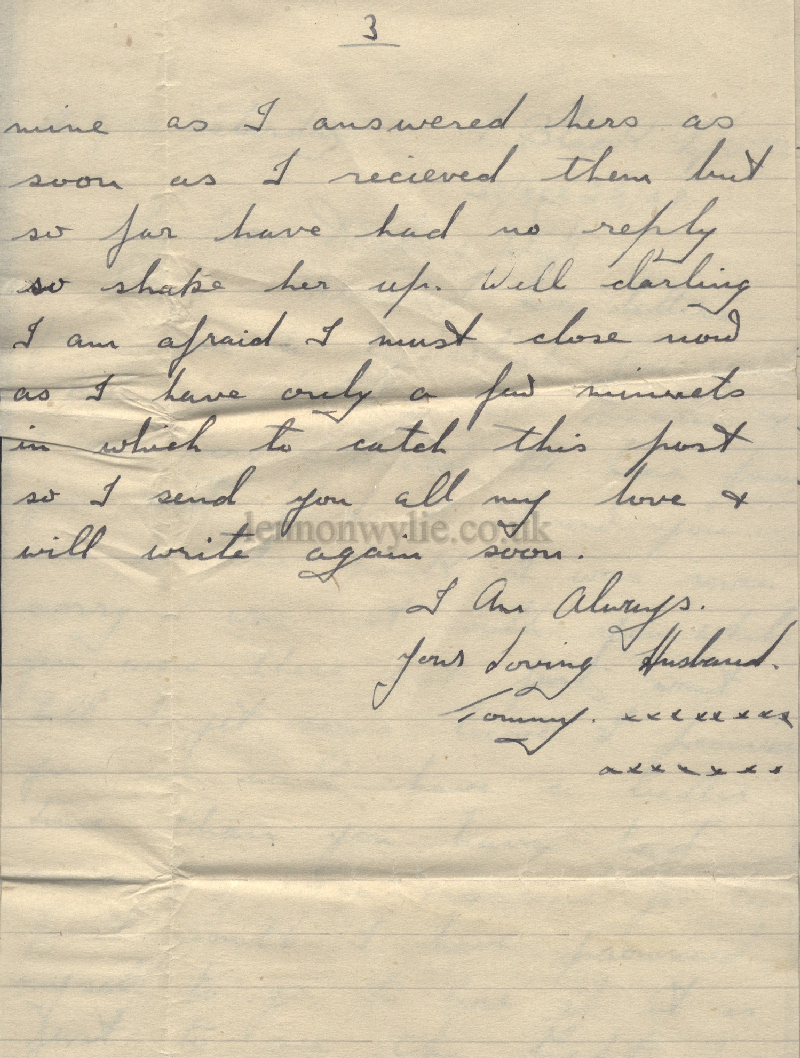 3
mine as I answered hers as
soon as I recieved them but
so far have had no reply
so shake her up. Well darling
I am afraid I must close now
as I have only a few minuets
in which to catch this post
so I send you all my love &
lennonwylie.co.uk
will write again soon.
I Am Always.
Your Loving Husband.
Tommy. xxxxxxxx
xxxxxxx